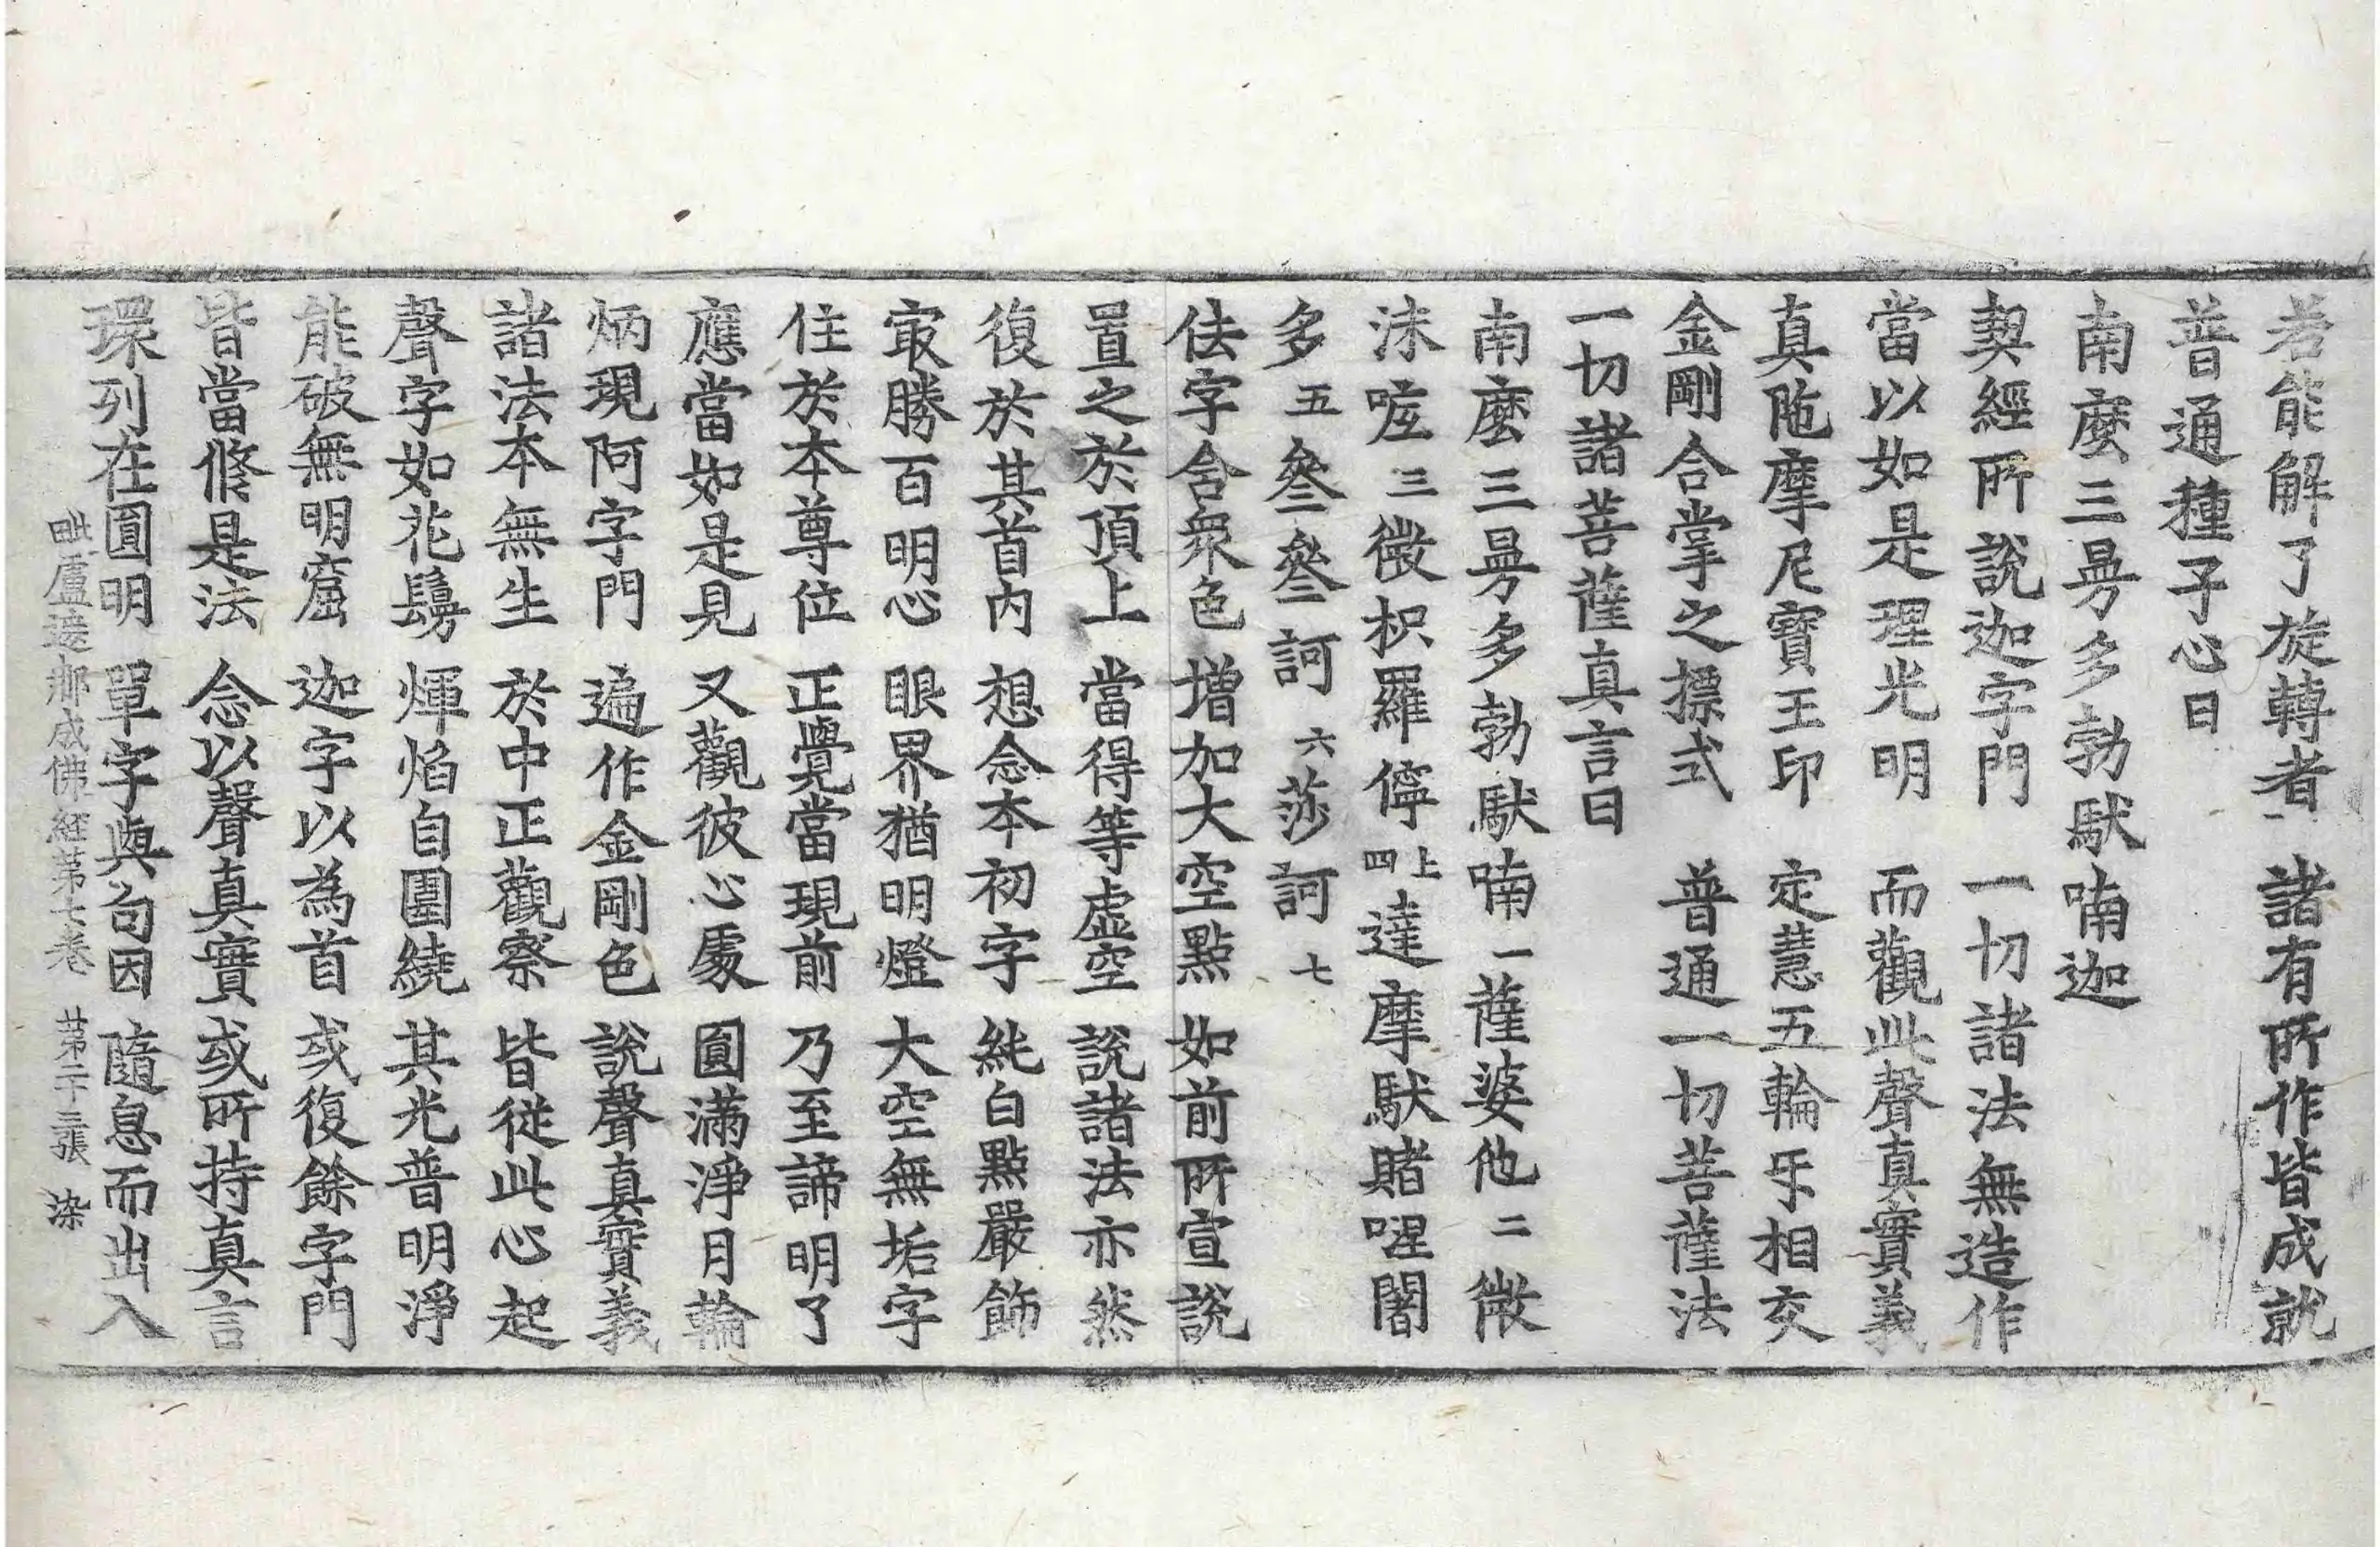 若能解了旋轉者 諸有所作皆成就
普通種子心曰
南麽三曼多勃馱喃迦
契經所說迦字門 一切諸法無造作
當以如是理光明 而觀此聲真實義
真陁摩尼寶王印 定慧五輪㸦相交
金剛合掌之摽式 普通一切菩薩法
一切諸菩薩真言曰
南麽三曼多勃馱喃一薩婆他二微
沫㗌三微枳羅儜上四達摩馱睹嚺闍
多五參參訶六莎訶七
佉字含衆色 增加大空點 如前所宣說
置之於頂上 當得等虛空 說諸法亦然
復於其首內 想念本初字 純白點嚴飾
㝡勝百明心 眼界猶明燈 大空無垢字
住於本尊位 正覺當現前 乃至諦明了
應當如是見 又觀彼心處 圓滿淨月輪
炳現阿字門 遍作金剛色 說聲真實義
諸法本無生 於中正觀察 皆從此心起
聲字如花鬘 煇焰自圍繞 其光普明淨
能破無明窟 迦字以為首 或復餘字門
皆當修是法 念以聲真實 或所持真言
環列在圓明 單字與句因 隨息而出入
毗盧遮那成佛經第七卷 第二十三張 染